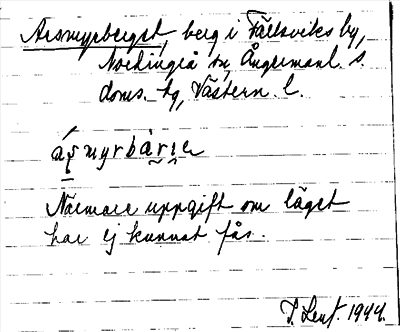 Arsmyrberget, berg i Fällsviks by,
Nordingrå sn, Ångermanl. s.
doms. hg, Västern. l.
Närmare uppgift om läget
har ej kunnat fås.
1944.